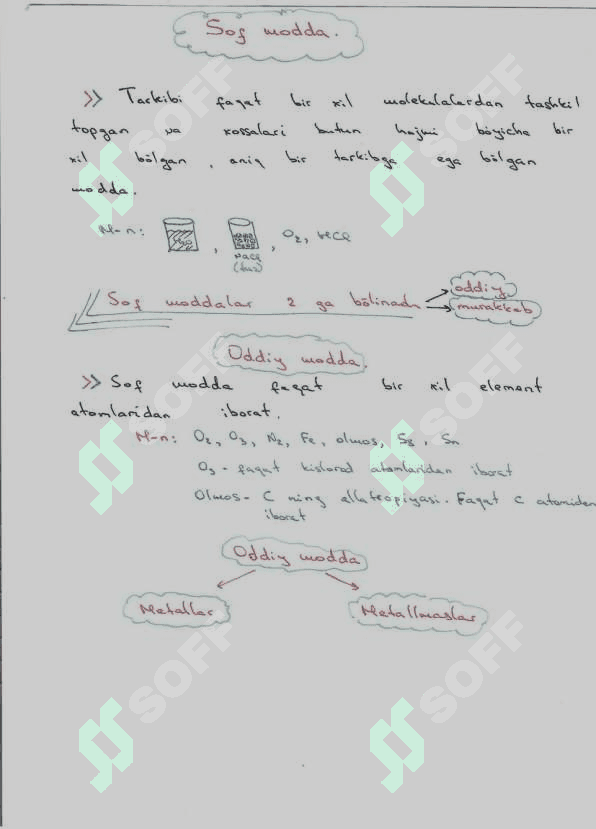 Sof modda.
>> Tarkibi faqat bir xil molekulalardan tashkil
topgan va xossalari butun hajmi bo'yicha bir
xil bo'lgan, aniq bir tarkibga ega bo'lgan
modda.
M-n: H₂O, NaCl (tuz), O₂, HCl
Sof moddalar 2 ga bo'linadi
oddiy
murakkab
Oddiy modda.
>> Sof modda faqat bir xil element
atomlaridan iborat.
M-n: O₂, O₃, N₂, Fe, olmos, S₈, Sn
O₃ - faqat kislorod atomlaridan iborat
Olmos - C ning allatropiyasi. Faqat C atomidan
iborat
Oddiy modda
Metallar
Metallmaslar
SOFF
SOFF
SOFF
SOFF
SOFF
SOFF